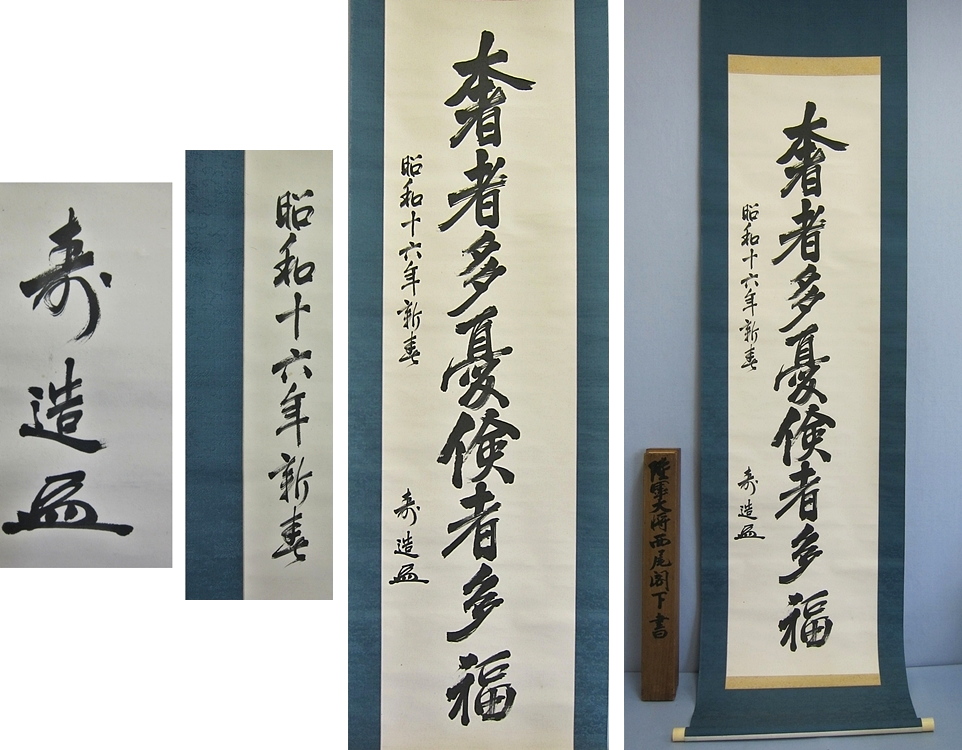 寿造盃
昭和十六年新春
奢者多憂倹者多福
昭和十六年新春
寿造盃
奢者多憂倹者多福
昭和十六年新春
寿造盃
陸軍大将西尾閣下書